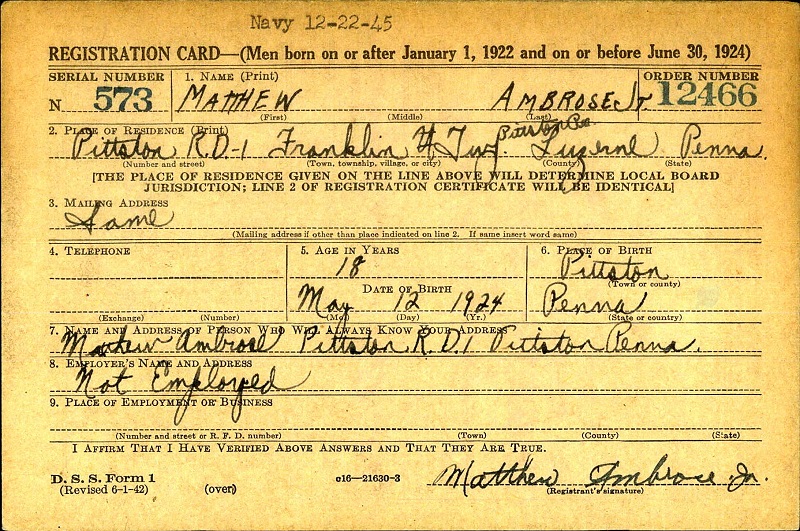 Navy 12-22-45
REGISTRATION CARD—(Men born on or after January 1, 1922 and on or before June 30, 1924)
SERIAL NUMBER 1. NAME (Print) ORDER NUMBER
N 573 MATTHEW AMBROSE Jr. 12466
(First) (Middle) (Last)
2. PLACE OF RESIDENCE (Print) Pittston Pa
Pittston R.D-1 Franklin Twp. Luzerne Penna.
(Number and street) (Town, township, village, or city) (County) (State)
[THE PLACE OF RESIDENCE GIVEN ON THE LINE ABOVE WILL DETERMINE LOCAL BOARD
JURISDICTION; LINE 2 OF REGISTRATION CERTIFICATE WILL BE IDENTICAL]
3. MAILING ADDRESS
Same
(Mailing address if other than place indicated on line 2. If same insert word same)
4. TELEPHONE 5. AGE IN YEARS 6. PLACE OF BIRTH
18 Pittston
(Town or county)
DATE OF BIRTH
May 12 1924 Penna
(Exchange) (Number) (Mo.) (Day) (Yr.) (State or country)
7. NAME AND ADDRESS OF PERSON WHO WILL ALWAYS KNOW YOUR ADDRESS
Mathew Ambrose Pittston R.D.1 Pittston Penna.
8. EMPLOYER'S NAME AND ADDRESS
Not Employed
9. PLACE OF EMPLOYMENT OR BUSINESS
(Number and street or R. F. D. number) (Town) (County) (State)
I AFFIRM THAT I HAVE VERIFIED ABOVE ANSWERS AND THAT THEY ARE TRUE.
D. S. S. Form 1 o16—21630-3 Matthew Ambrose Jr.
(Revised 6-1-42) (over) (Registrant's signature)